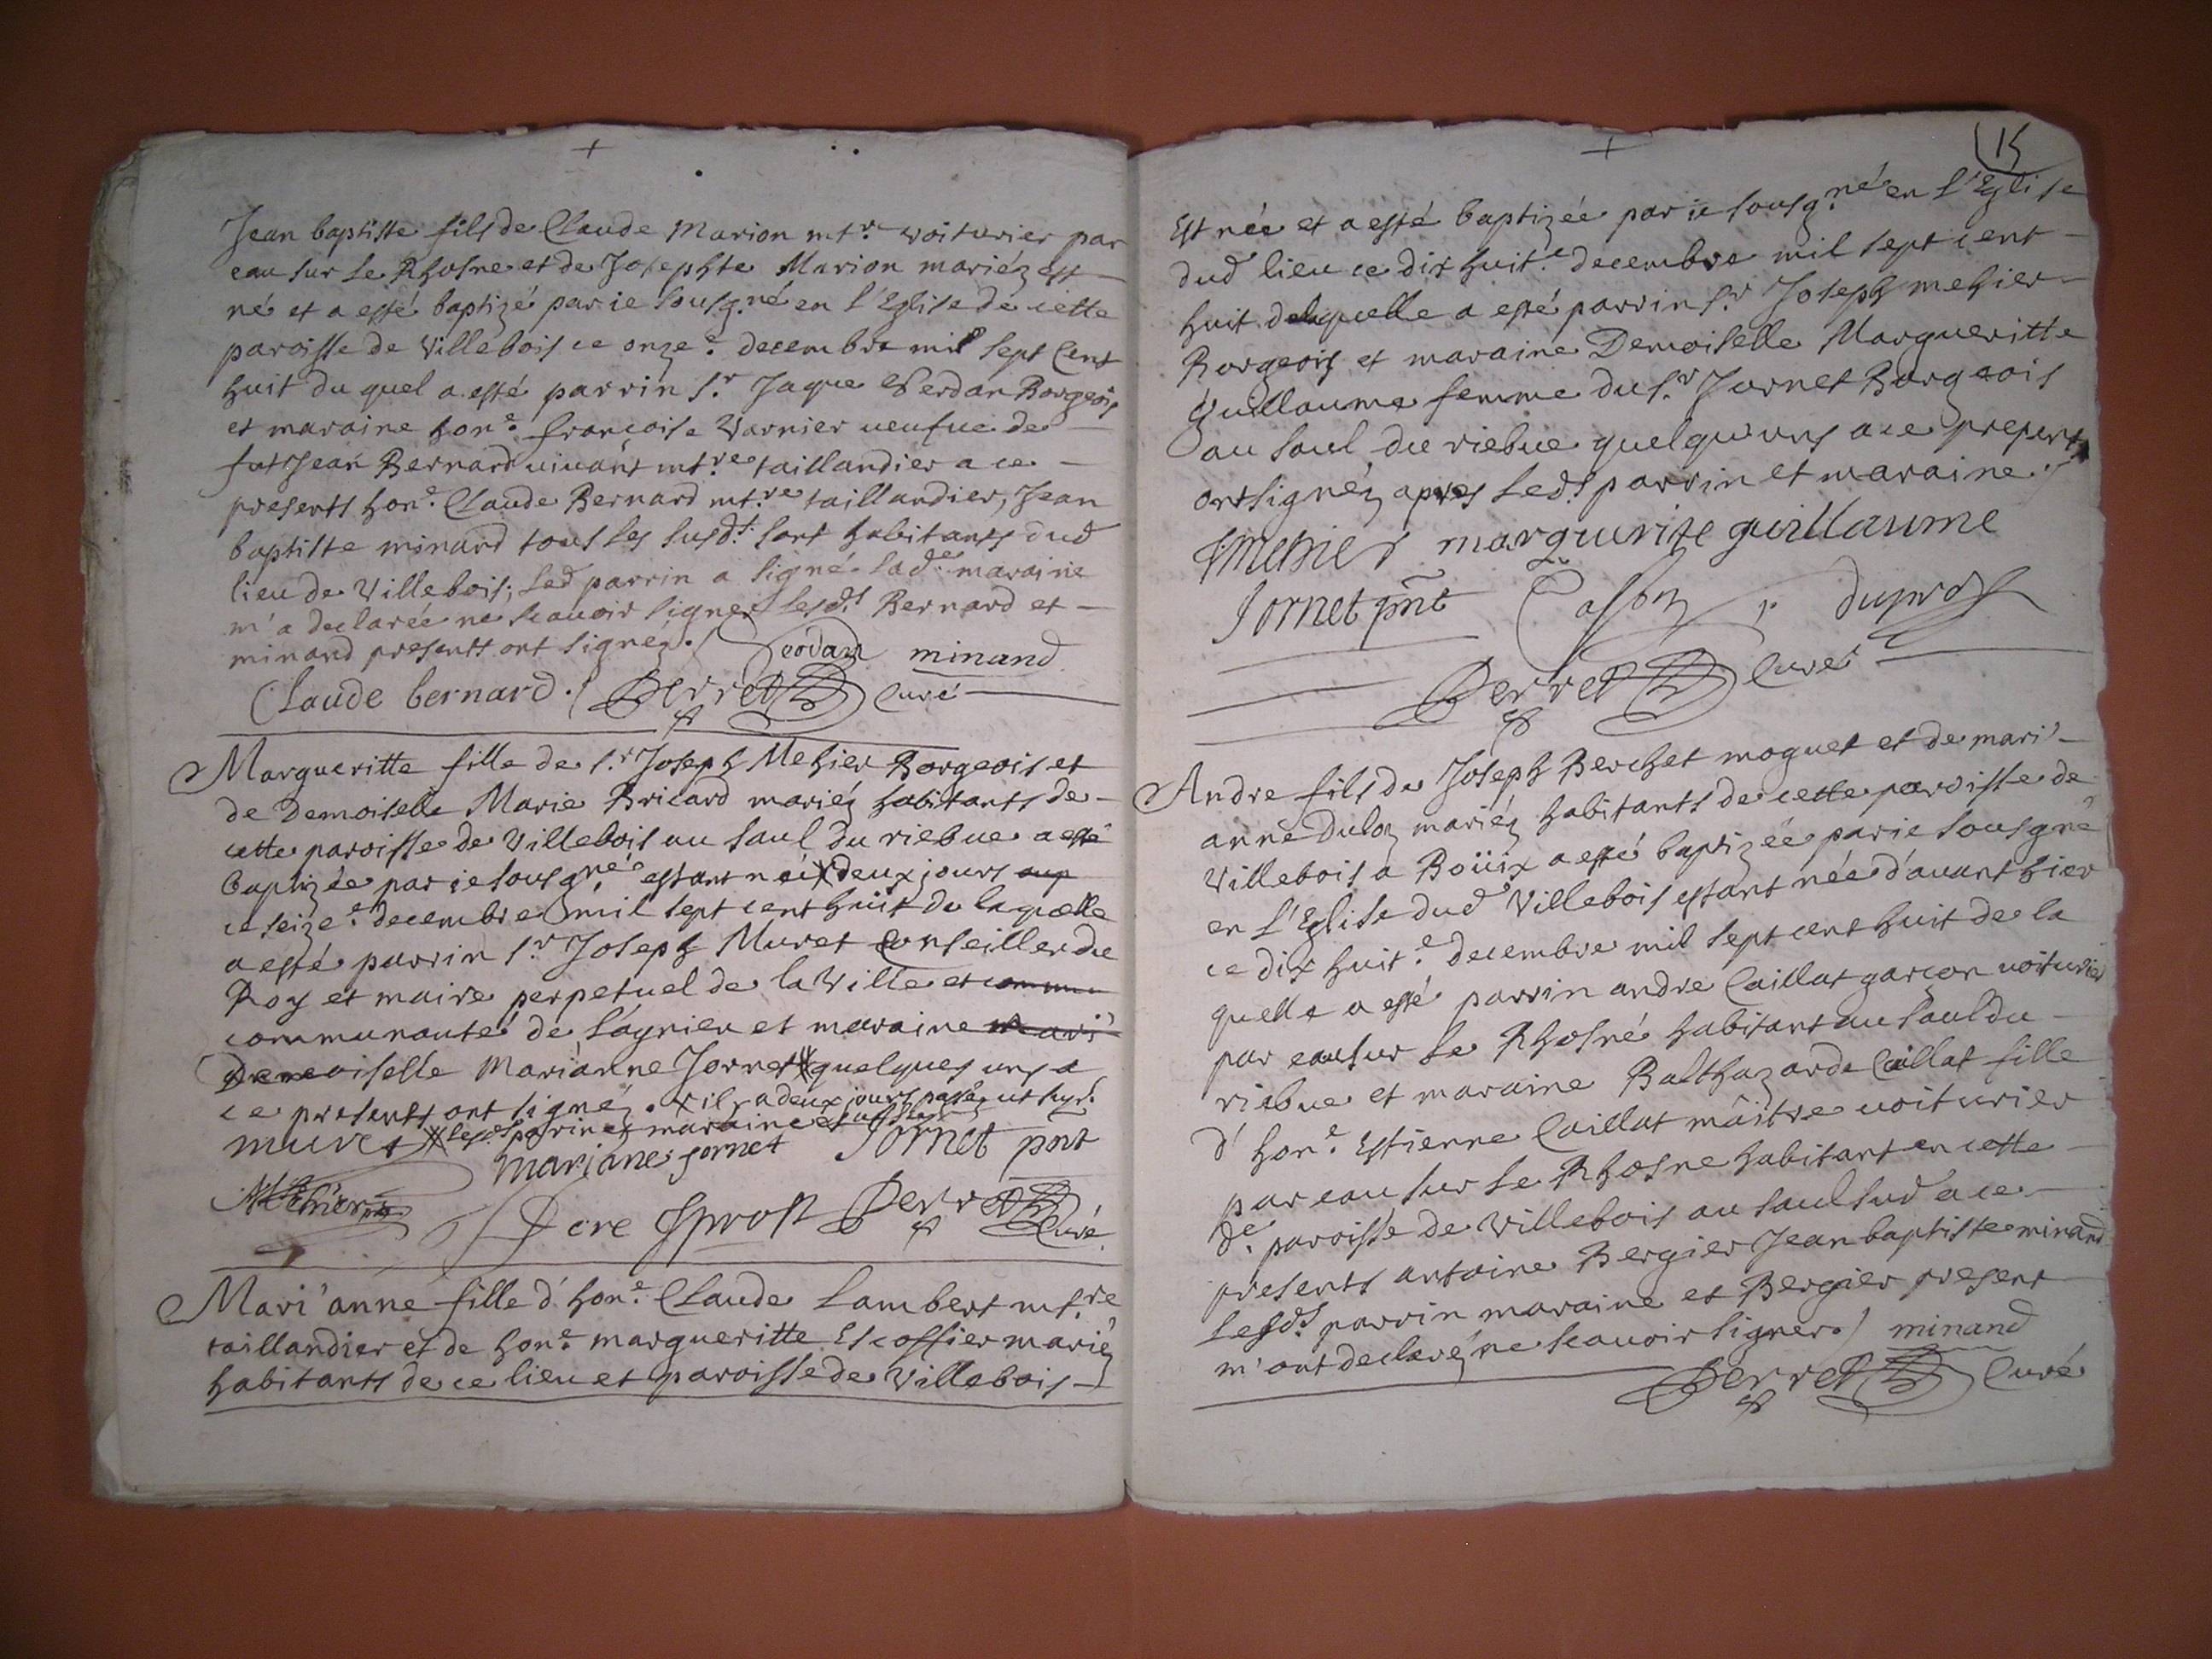 Jean baptiste fils de Claude Marion mtr. voiturier par
eau sur le Rhosne et de Josephte Marion mariéz est
né et a esté baptizé par ie sousg.né en l'Eglise de cette
paroisse de Villebois ce onze.e decembre mil sept Cent
huit du quel a esté parrin s.r Jaque Verdan Borgeois
et maraine hon.e françoise Varnier ueufue de
fut Jean Bernard uiuant mt.re taillandier a ce
presents hon.e Claude Bernard mt.re taillandier, Jean
baptiste minand tous les susd.ts sont habitants dud
lieu de Villebois; Led parrin a signé. Lad.e maraine
m'a declarée ne scauoir signer Lesd.ts Bernard et
minand presents ont signéz./. minand
Claude bernard ./. Perret Curé
Margueritte fille de s.r Joseph Mehier Borgeois et
de Demoiselle Marie Bricard mariéz habitants de
cette paroisse de Villebois au Saul du riebue a esté
baptizée par ie sousg.né estant née x deux jours aup
ce seize.e decembre mil sept cent huit de laquelle
a esté parrin s.r Joseph Muret Conseiller du
Roy et maire perpetuel de la Ville et commu
communauté de Lagnieu et maraine mari
Demoiselle Marianne Jornet x quelques uns a
ce presents ont signéz. x il y a deux jours passéz
muret x Lesd parrin et maraine
marianne jornet Jornet pnt
Mehier
Perret Curé
Mari'anne fille d'hon.e Claude Lambert mt.re
taillandier et de hon.e margueritte Escoffier mariéz
habitants de ce lieu et paroisse de Villebois
15
Est née et a esté baptizée par ie sousg.né en l'Eglise
dud lieu ce dix huit.e decembre mil sept cent
huit de laquelle a esté parrin s.r Joseph mehier
Borgeois et maraine Demoiselle Margueritte
Guillaume femme du s.r Jurnet Borgeois
au Saul du riebue quelqu'uns a ce present
ont signéz apres Led.s parrin et maraine ./.
mehier marguerite guillaume
Jornet pnt
Perret Curé
Andre fils de Joseph Berchet moguet et de mari'
anne Duloz mariéz habitants de cette paroisse de
Villebois a Boüix a esté baptizée par ie sousgné
en l'Eglise dud Villebois estant née d'auant hier
ce dix huit.e decembre mil sept cent huit de la
quelle a esté parrin andre Caillat garçon uoiturier
par eau sur le Rhosne habitant au Saul du
riebue et maraine Balthazarde Caillat fille
d'hon.e Estienne Caillat mâitre uoiturier
par eau sur le Rhosne habitant en cette
d.e paroisse de Villebois au Saul sud a ce
presents antoine Bergier Jean baptiste minand
Lesd.ts parrin maraine et Bergier present
m'ont declaréz ne scauoir signer ./. minand
Perret Curé